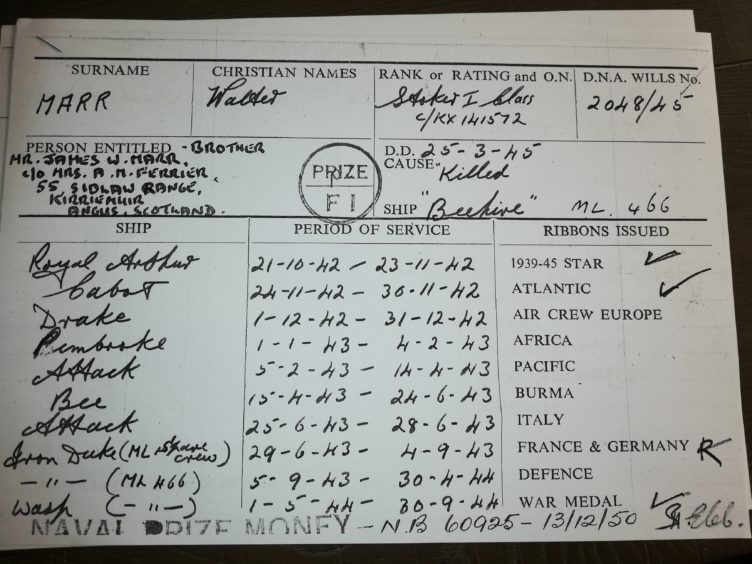 SURNAME CHRISTIAN NAMES RANK or RATING and O.N. D.N.A. WILLS No.
MARR Walter Stoker I Class 2048/45
C/KX 141572
PERSON ENTITLED - BROTHER
MR. JAMES W. MARR,
c/o MRS. A. M. FERRIER,
55, SIDLAW RANGE,
KIRRIEMUIR
ANGUS, SCOTLAND.
PRIZE
F I
D.D. 25-3-45
CAUSE Killed
SHIP "Beehive" ML. 466
SHIP PERIOD OF SERVICE RIBBONS ISSUED
Royal Arthur 21-10-42 - 23-11-42 1939-45 STAR ✓
Cabot 24-11-42 - 30-11-42 ATLANTIC ✓
Drake 1-12-42 - 31-12-42 AIR CREW EUROPE
Pembroke 1-1-43 - 4-2-43 AFRICA
Attack 5-2-43 - 14-4-43 PACIFIC
Bee 15-4-43 - 24-6-43 BURMA
Attack 25-6-43 - 28-6-43 ITALY
Iron Duke (ML spare crew) 29-6-43 - 4-9-43 FRANCE & GERMANY R
-"- (ML 466) 5-9-43 - 30-4-44 DEFENCE
Wasp (-"-) 1-5-44 - 30-9-44 WAR MEDAL ✓
NAVAL PRIZE MONEY - N.B 60925 - 13/12/50